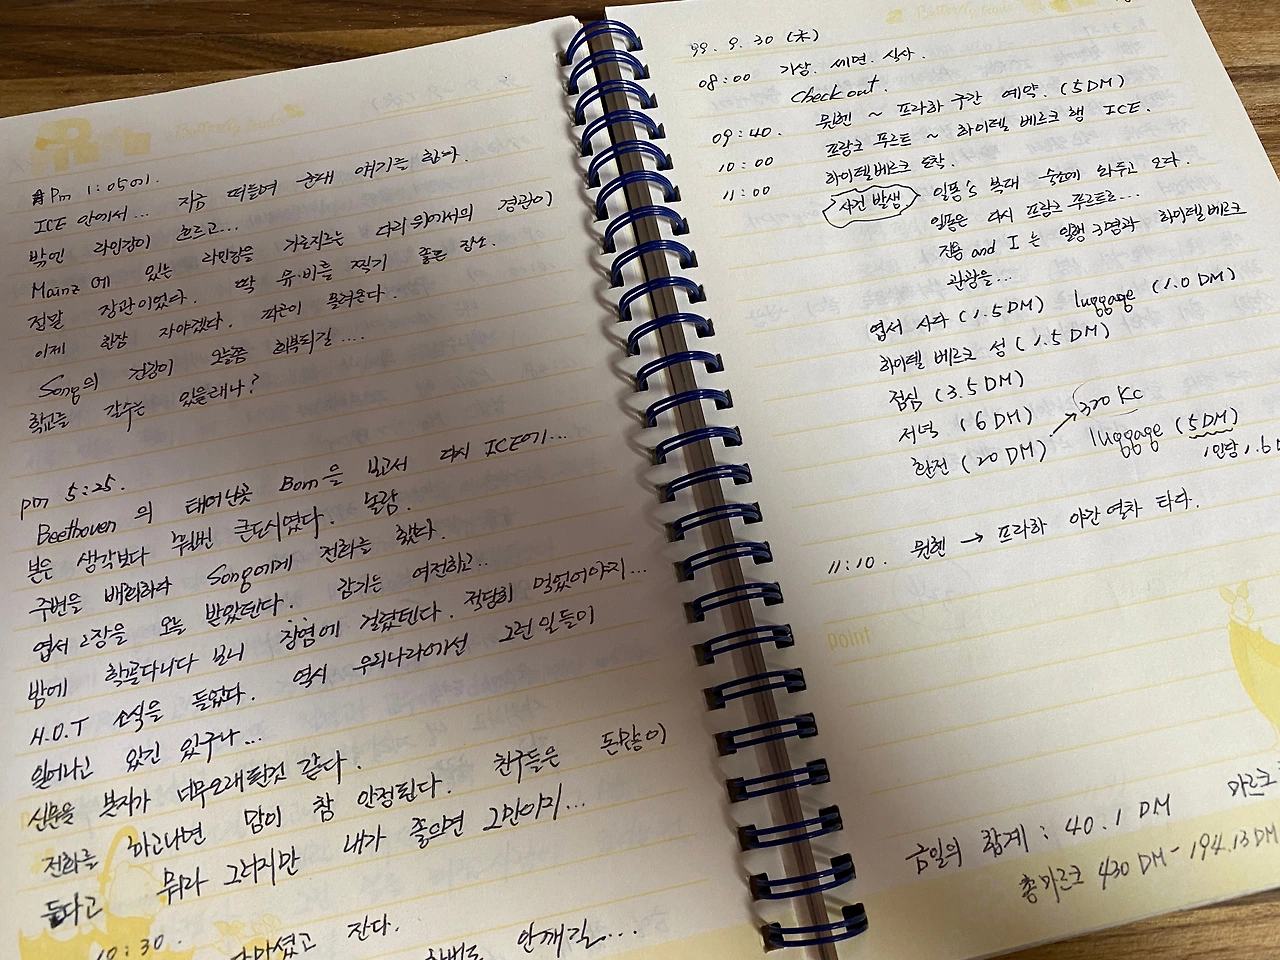 Pm 1:05이.
ICE 안에서... 지금 떠들며 군대 얘기를 한다.
밖엔 라인강이 흐르고...
Mainz에 있는 라인강을 가로지르는 다리위에서의 경관이
정말 장관이었다. 딱 뮤·비를 찍기 좋은 장소.
이제 한잠 자야겠다. 피곤이 몰려온다.
Song의 건강이 오늘쯤 회복되길....
학교는 갈수는 있을래나?
pm 5:25.
Beethoven 의 태어난곳 Bonn을 보고서 다시 ICE에...
본은 생각보다 큰도시였다. 놀람.
주변을 배회하다 Song에게 전화를 했다.
엽서 2장을 오늘 받았댄다. 감기는 여전하고..
밤에 학굘다니다 보니 장염에 걸렸댄다. 적당히 먹었어야지...
H.O.T 소식을 들었다. 역시 우리나라에선 그런일들이
일어나고 있긴 있구나...
신문을 본지가 너무오래된것 같다.
전화를 하고나면 맘이 참 안정된다. 친구들은 돈많이
든다고 뭐라 그러지만 내가 좋으면 그만이지...
10:30. 마셨고 잔다.
안깨길...
99. 9. 30 (木)
08:00 기상. 세면. 식사.
Check out.
09:40. 뮌헨 ~ 프라하 구간 예약. (5DM)
10:00 프랑크 푸르트 ~ 하이델 베르크 행 ICE.
11:00 하이델베르크 도착.
사건 발생 일풍's 복대 숙소에 놔두고 오다.
일풍은 다시 프랑크 푸르트로...
진용 and I 는 일행 3명과 하이델베르크
관광을...
엽서 사다 (1.5DM) luggage (1.0 DM)
하이델 베르크 성 (1.5DM)
점심 (3.5 DM)
저녁 (6 DM)
환전 (20 DM) → 320 Kc
luggage (5DM)
1인당 1.6
11:10. 뮌헨 → 프라하 야간 열차 타다.
point
금일의 합계 : 40.1 DM 마르크
총마르크 430 DM - 194.13 DM